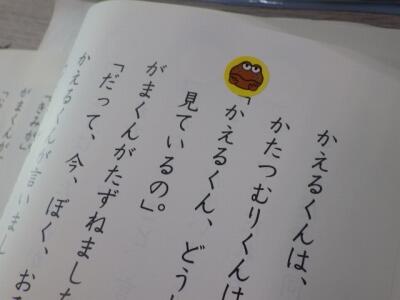 かえるくんは、
かたつむりくんは
「かえるくん、どうし
見ているの。」
がまくんがたずねました
「だって、今、ぼく、お
かえるくんが言いまし
「きみが
がまくんが